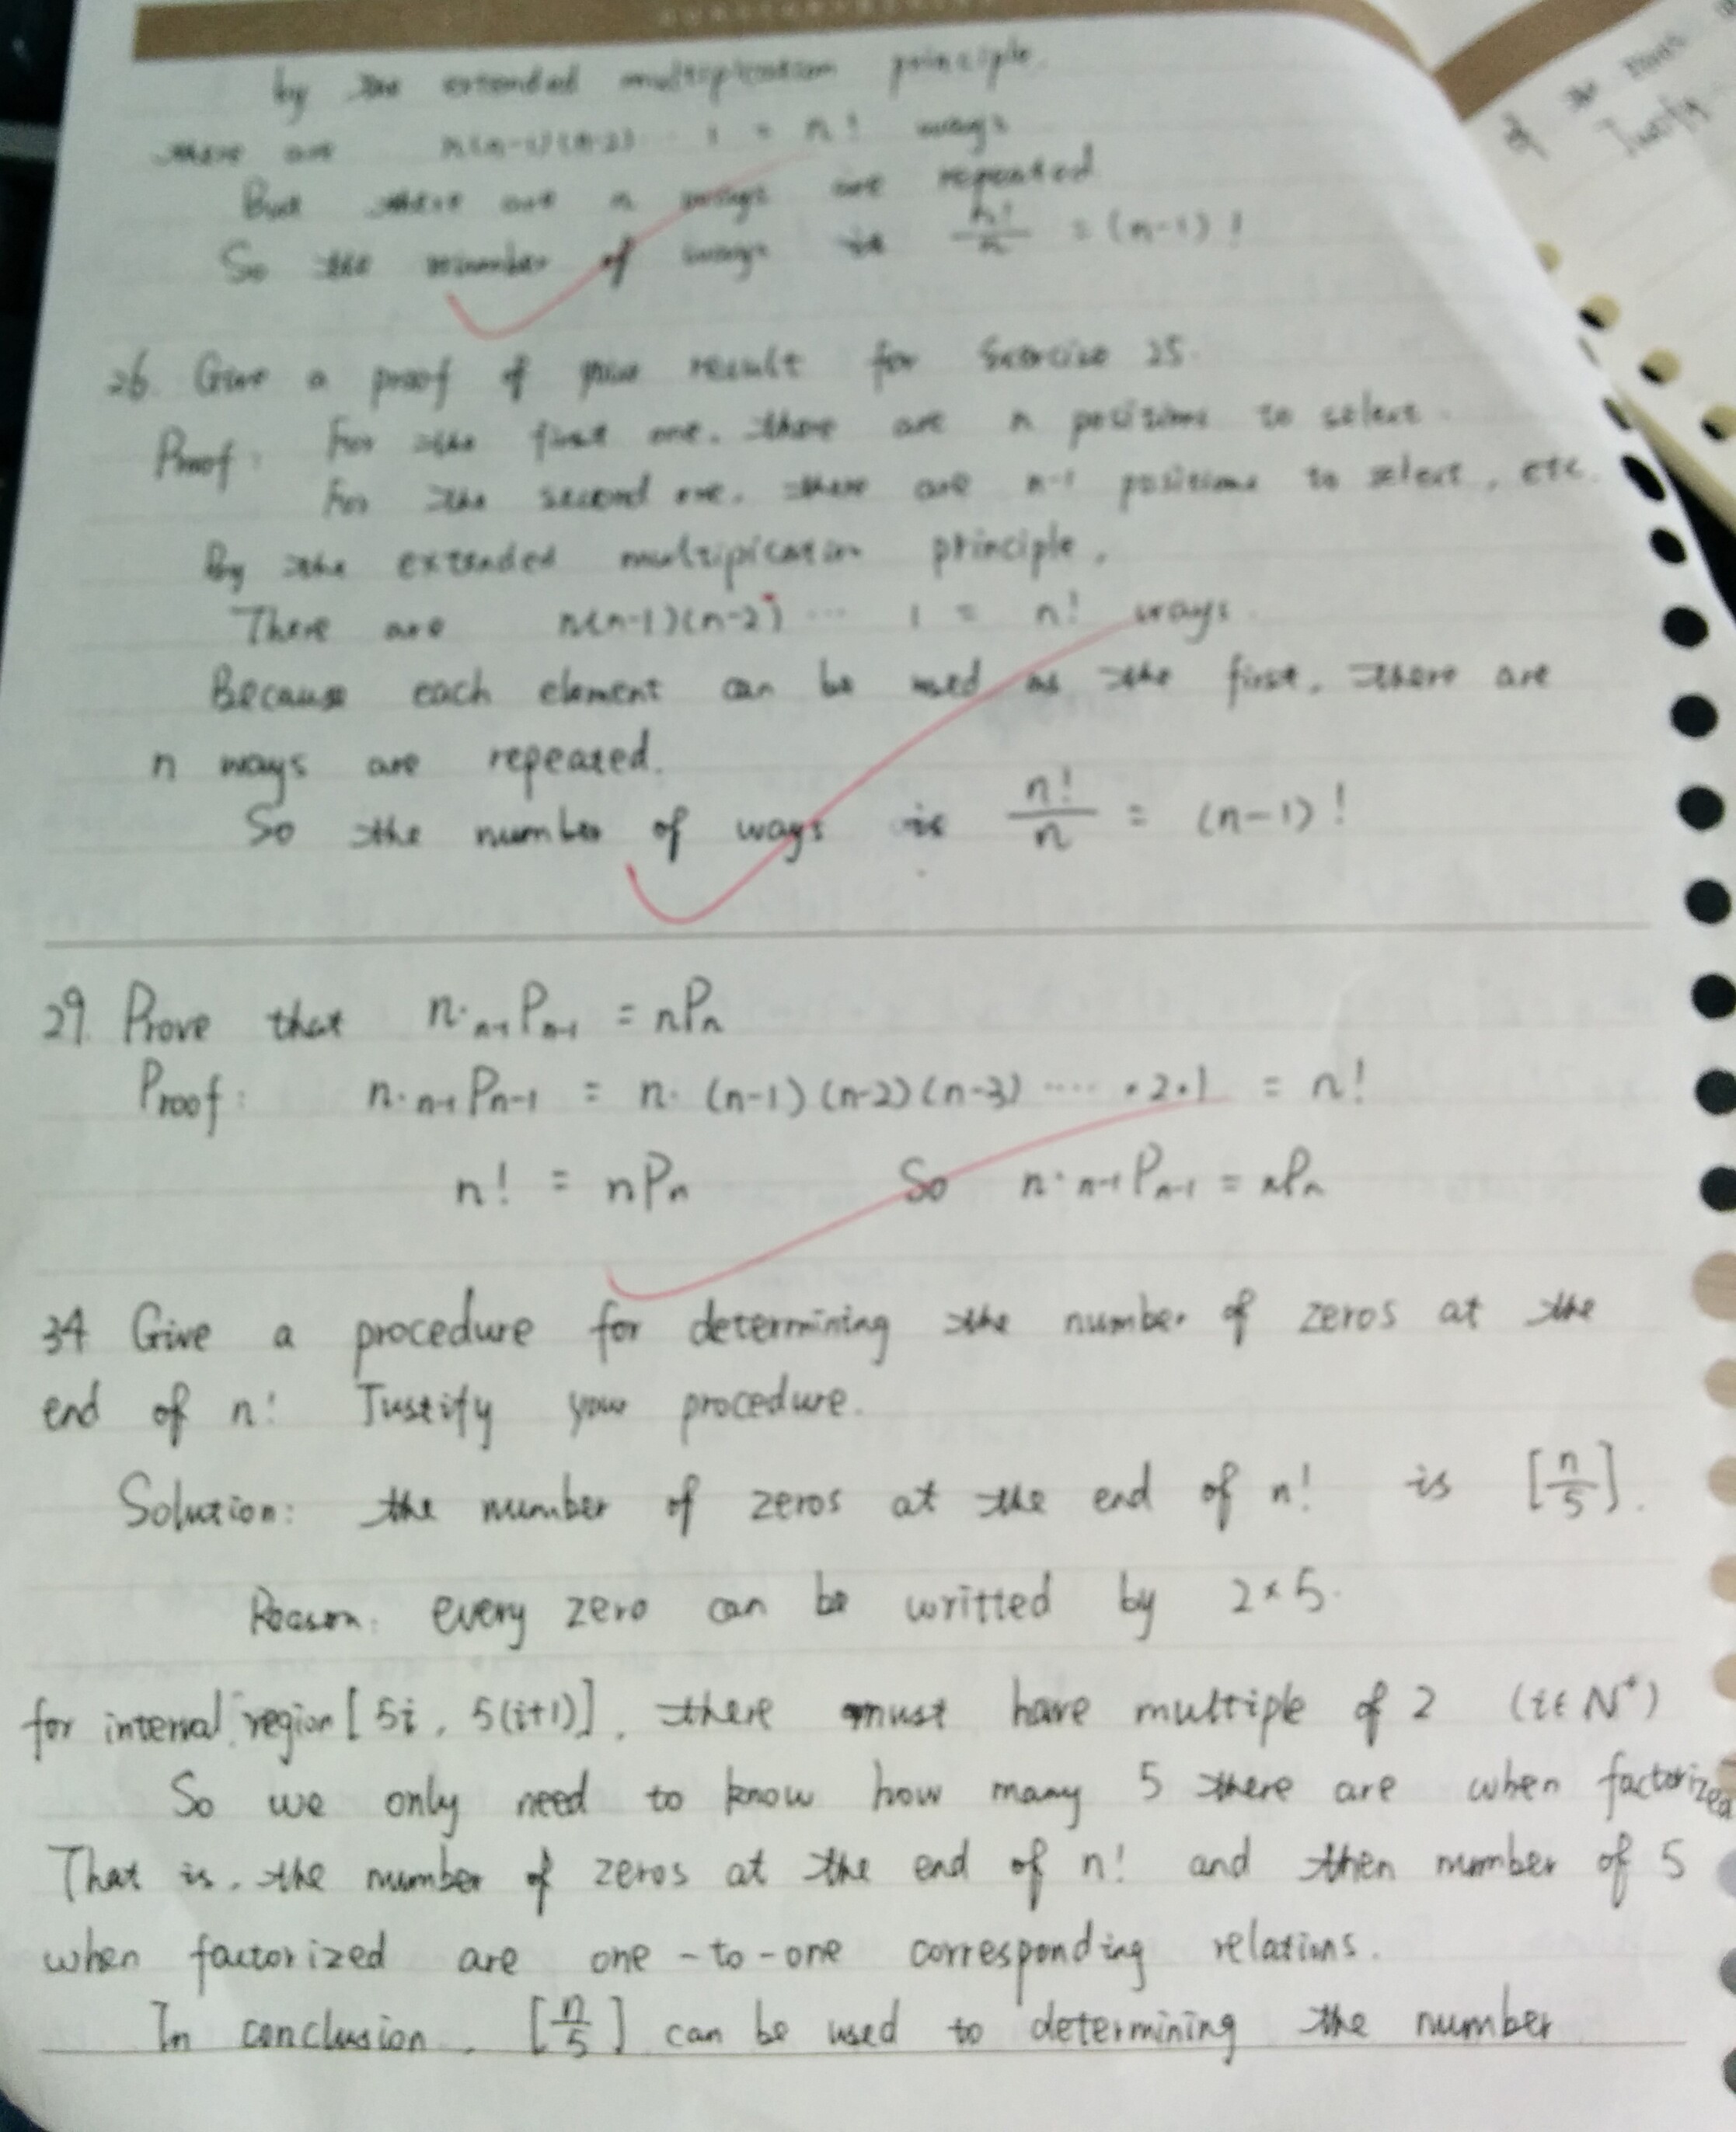 by the extended multiplication principle.
there are n(n-1)(n-2) ... 1 = n! ways
But there are n ways are repeated
So the number of ways is n!/n = (n-1)!
26. Give a proof of your result for Exercise 25.
Proof: For the first one, there are n positions to select.
For the second one, there are n-1 positions to select, etc.
By the extended multipication principle,
There are n(n-1)(n-2) ... 1 = n! ways.
Because each element can be used as the first, there are
n ways are repeated.
So the number of ways is n!/n = (n-1)!
29. Prove that n·n-1Pn-1 = nPn
Proof: n·n-1Pn-1 = n·(n-1)(n-2)(n-3) ····· ·2·1 = n!
n! = nPn So n·n-1Pn-1 = nPn
34. Give a procedure for determining the number of zeros at the
end of n! Justify your procedure.
Solution: the number of zeros at the end of n! is [n/5].
Reason: every zero can be writted by 2×5.
for interval region [5i, 5(i+1)], there must have multiple of 2 (i∈N⁺)
So we only need to know how many 5 there are when factorized
That is, the number of zeros at the end of n! and then number of 5
when factorized are one-to-one corresponding relations.
In conclusion, [n/5] can be used to determining the number
of the
Justify